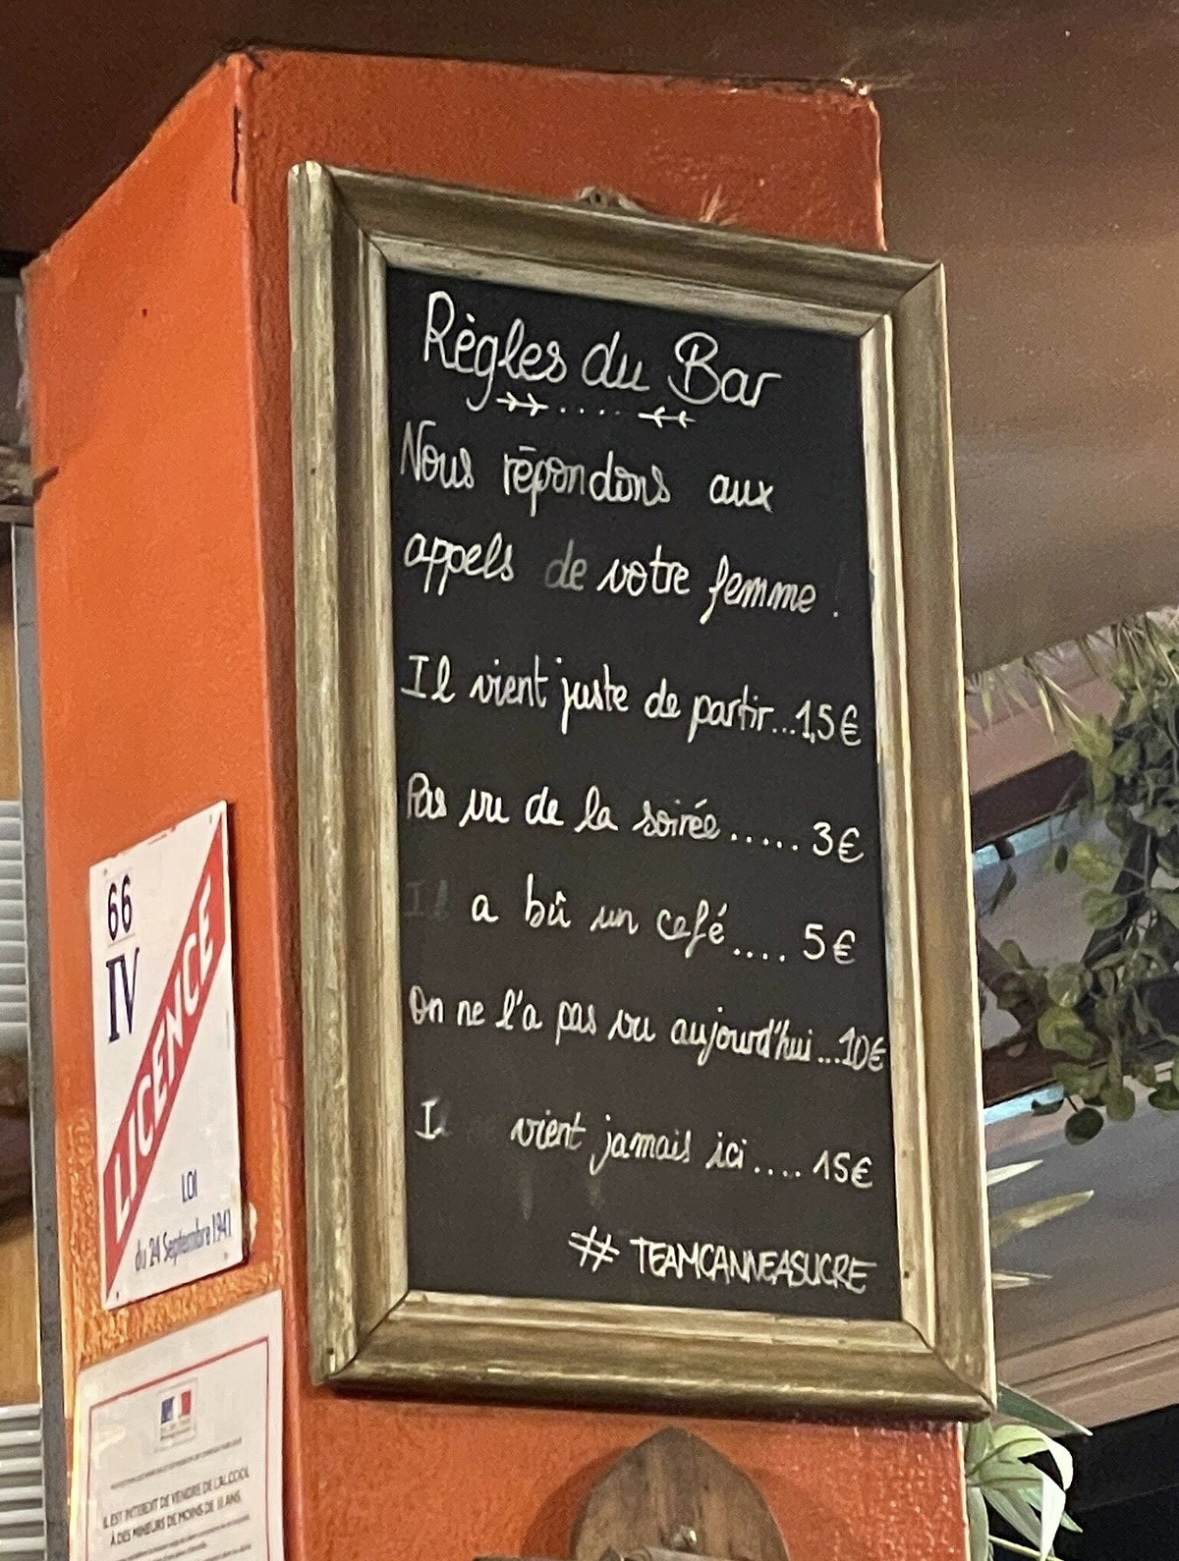 Règles du Bar
Nous répondons aux
appels de votre femme !
Il vient juste de partir...1,5€
Pas vu de la soirée..... 3€
Il a bû un café.... 5€
On ne l'a pas vu aujourd'hui...10€
Il ne vient jamais ici.... 15€
# TEAMCANNEASUCRE
66
IV
LICENCE
LOI
du 24 Septembre 1941
IL EST INTERDIT DE VENDRE DE L'ALCOOL
À DES MINEURS DE MOINS DE 18 ANS